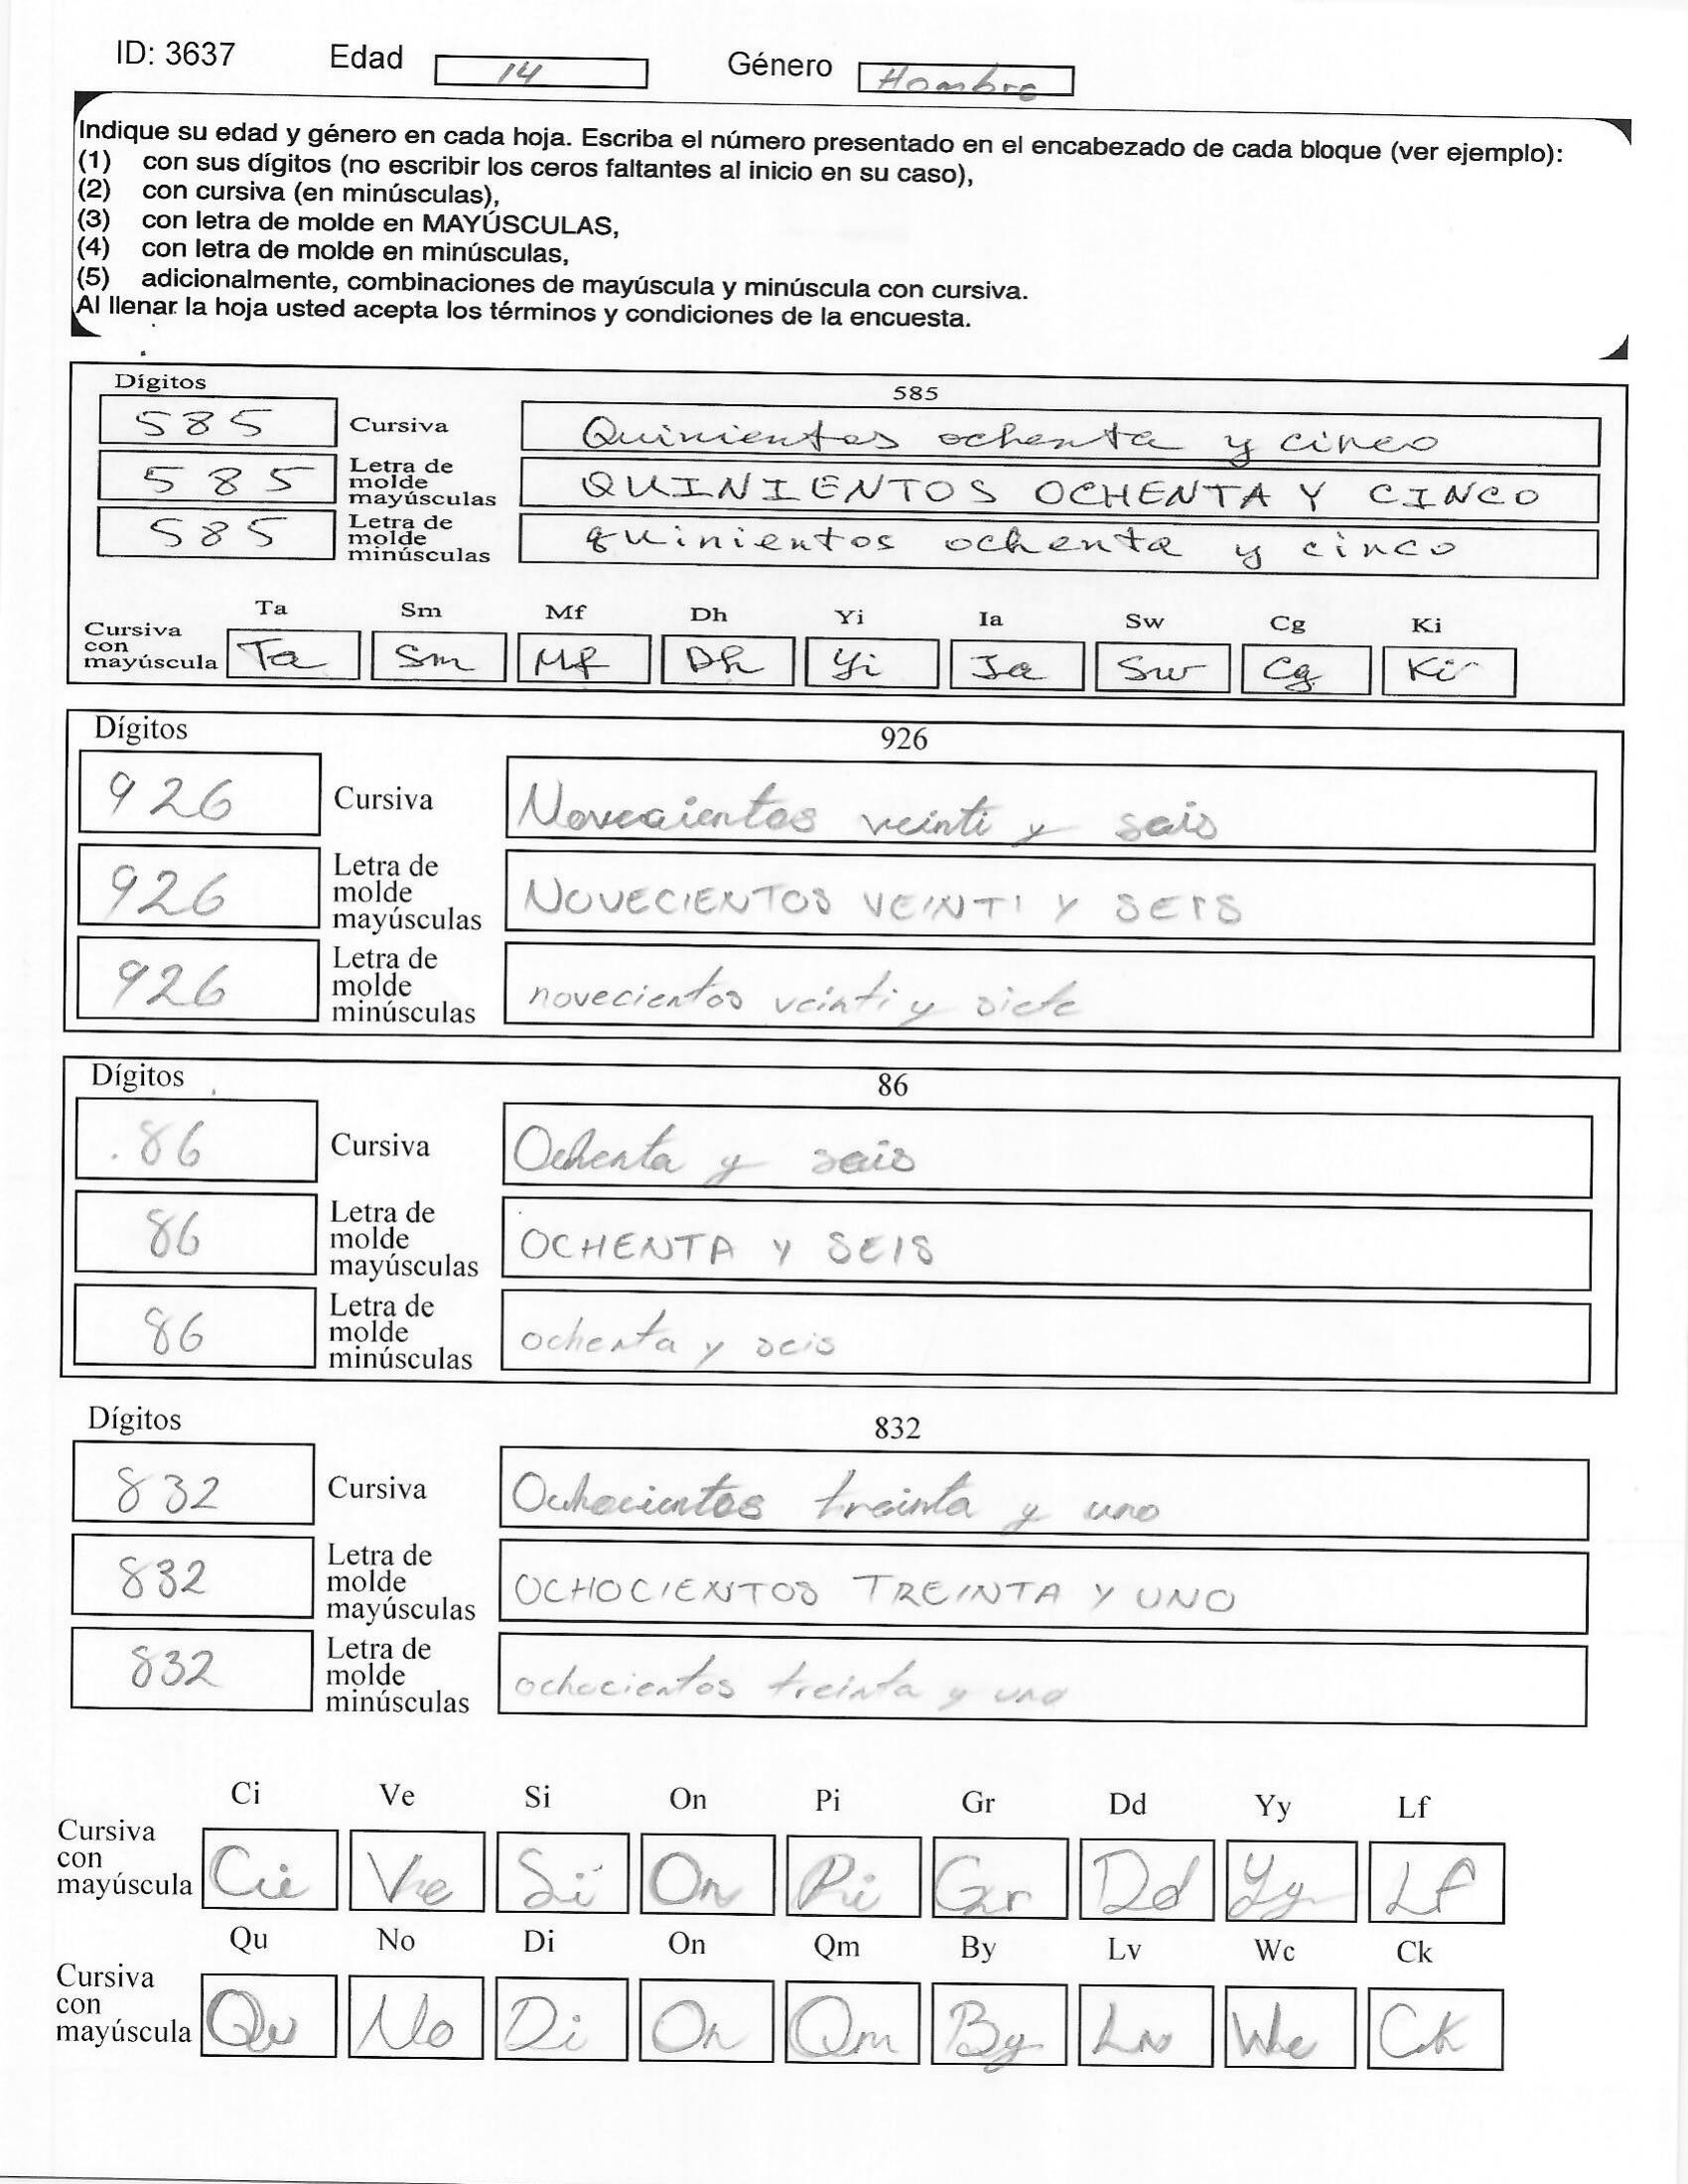 ID: 3637 Edad 14 Género Hombre
Indique su edad y género en cada hoja. Escriba el número presentado en el encabezado de cada bloque (ver ejemplo):
(1) con sus dígitos (no escribir los ceros faltantes al inicio en su caso),
(2) con cursiva (en minúsculas),
(3) con letra de molde en MAYÚSCULAS,
(4) con letra de molde en minúsculas,
(5) adicionalmente, combinaciones de mayúscula y minúscula con cursiva.
Al llenar la hoja usted acepta los términos y condiciones de la encuesta.
Dígitos 585
585 Cursiva Quinientos ochenta y cinco
585 Letra de molde mayúsculas QUINIENTOS OCHENTA Y CINCO
585 Letra de molde minúsculas quinientos ochenta y cinco
Ta Sm Mf Dh Yi Ia Sw Cg Ki
Cursiva con mayúscula Ta Sm Mf Dh Yi Ia Sw Cg Ki
Dígitos 926
926 Cursiva Novecientos veinti y seis
926 Letra de molde mayúsculas NOVECIENTOS VEINTI Y SEIS
926 Letra de molde minúsculas novecientos veinti y siete
Dígitos 86
86 Cursiva Ochenta y seis
86 Letra de molde mayúsculas OCHENTA Y SEIS
86 Letra de molde minúsculas ochenta y seis
Dígitos 832
832 Cursiva Ochocientos treinta y uno
832 Letra de molde mayúsculas OCHOCIENTOS TREINTA Y UNO
832 Letra de molde minúsculas ochocientos treinta y uno
Ci Ve Si On Pi Gr Dd Yy Lf
Cursiva con mayúscula Ci Ve Si On Pi Gr Dd Yy Lf
Qu No Di On Qm By Lv Wc Ck
Cursiva con mayúscula Qu No Di On Qm By Lv Wc Ck